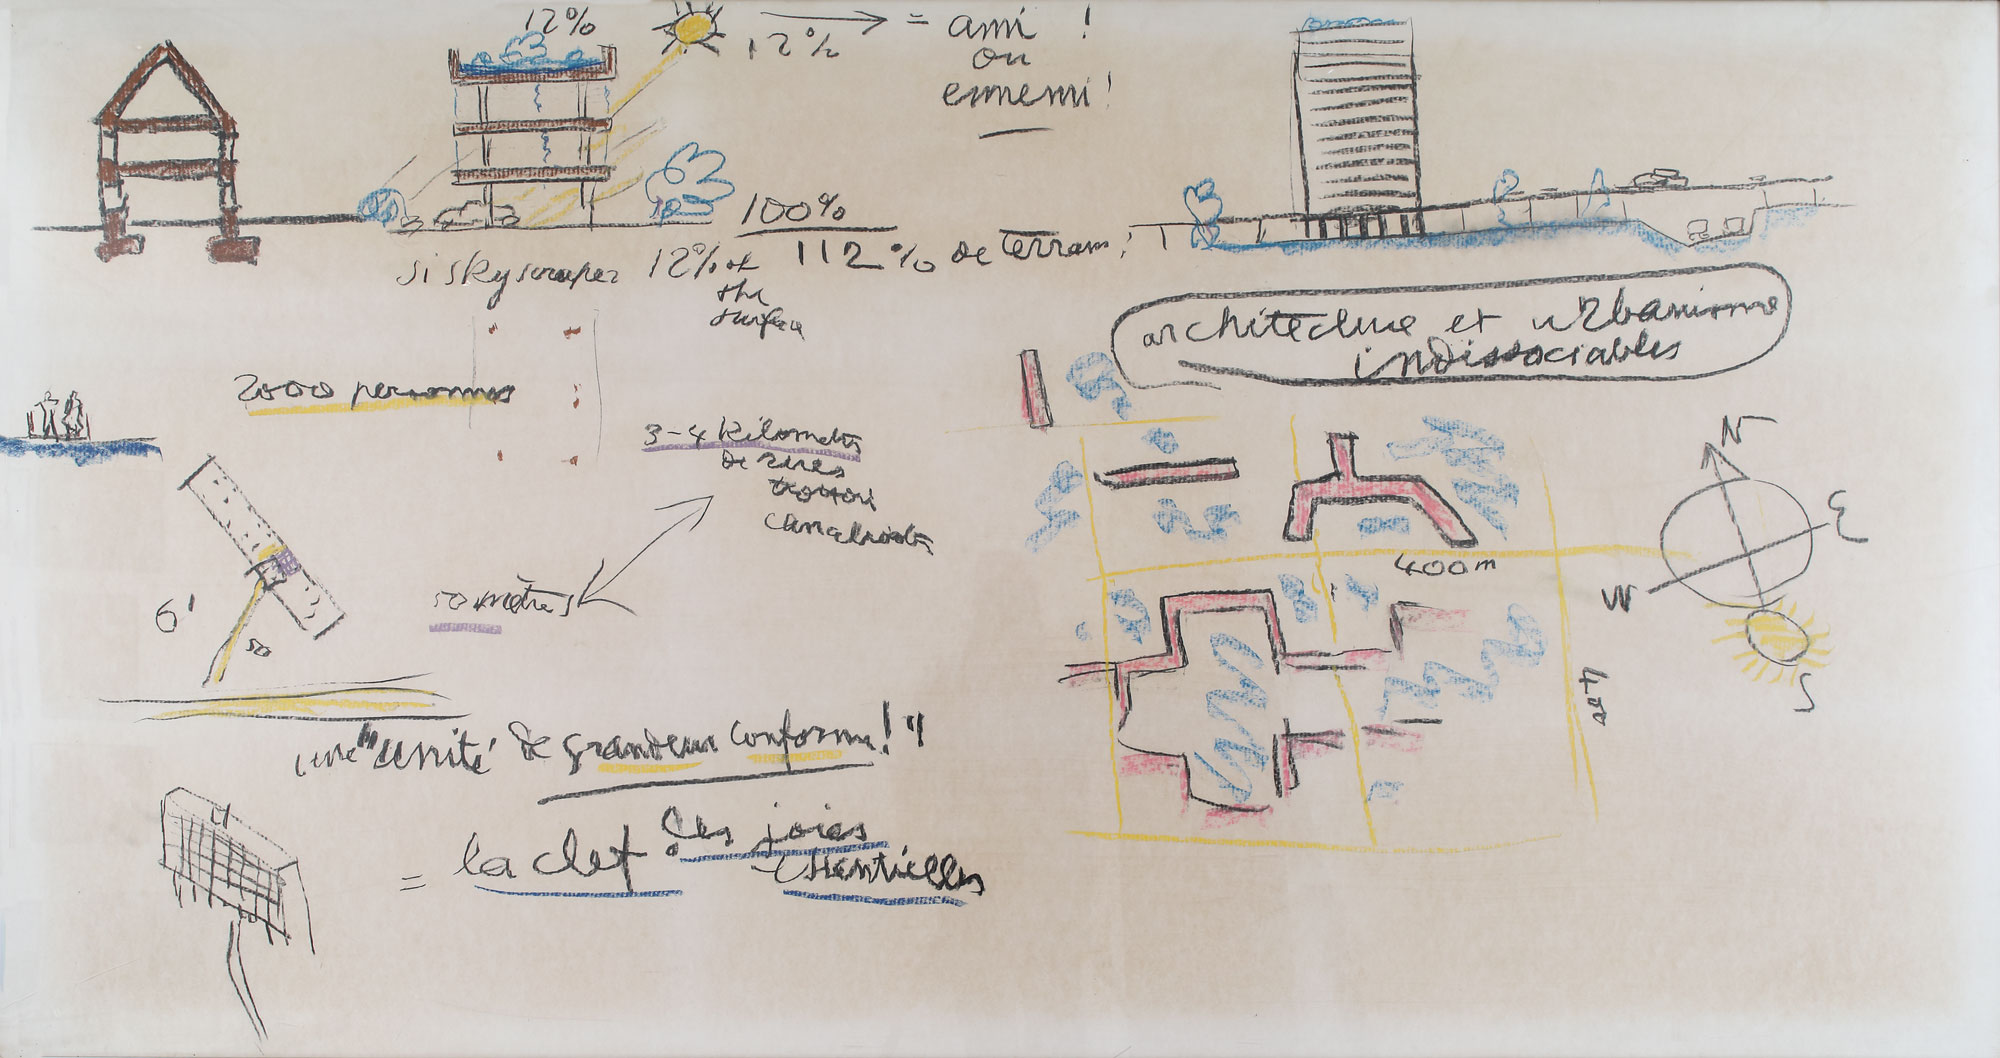 12%
12%
= ami !
ou
ennemi !
100%
112% de terrain
si skyscraper 12% of
the
surface
architecture et urbanisme
indissociables
2000 personnes
3-4 Kilometres
de rues
canalisations
50 mètres
6'
50
N
E
W
S
400m
400
une "unité de grandeur conforme!"
= la clef: les joies
essentielles